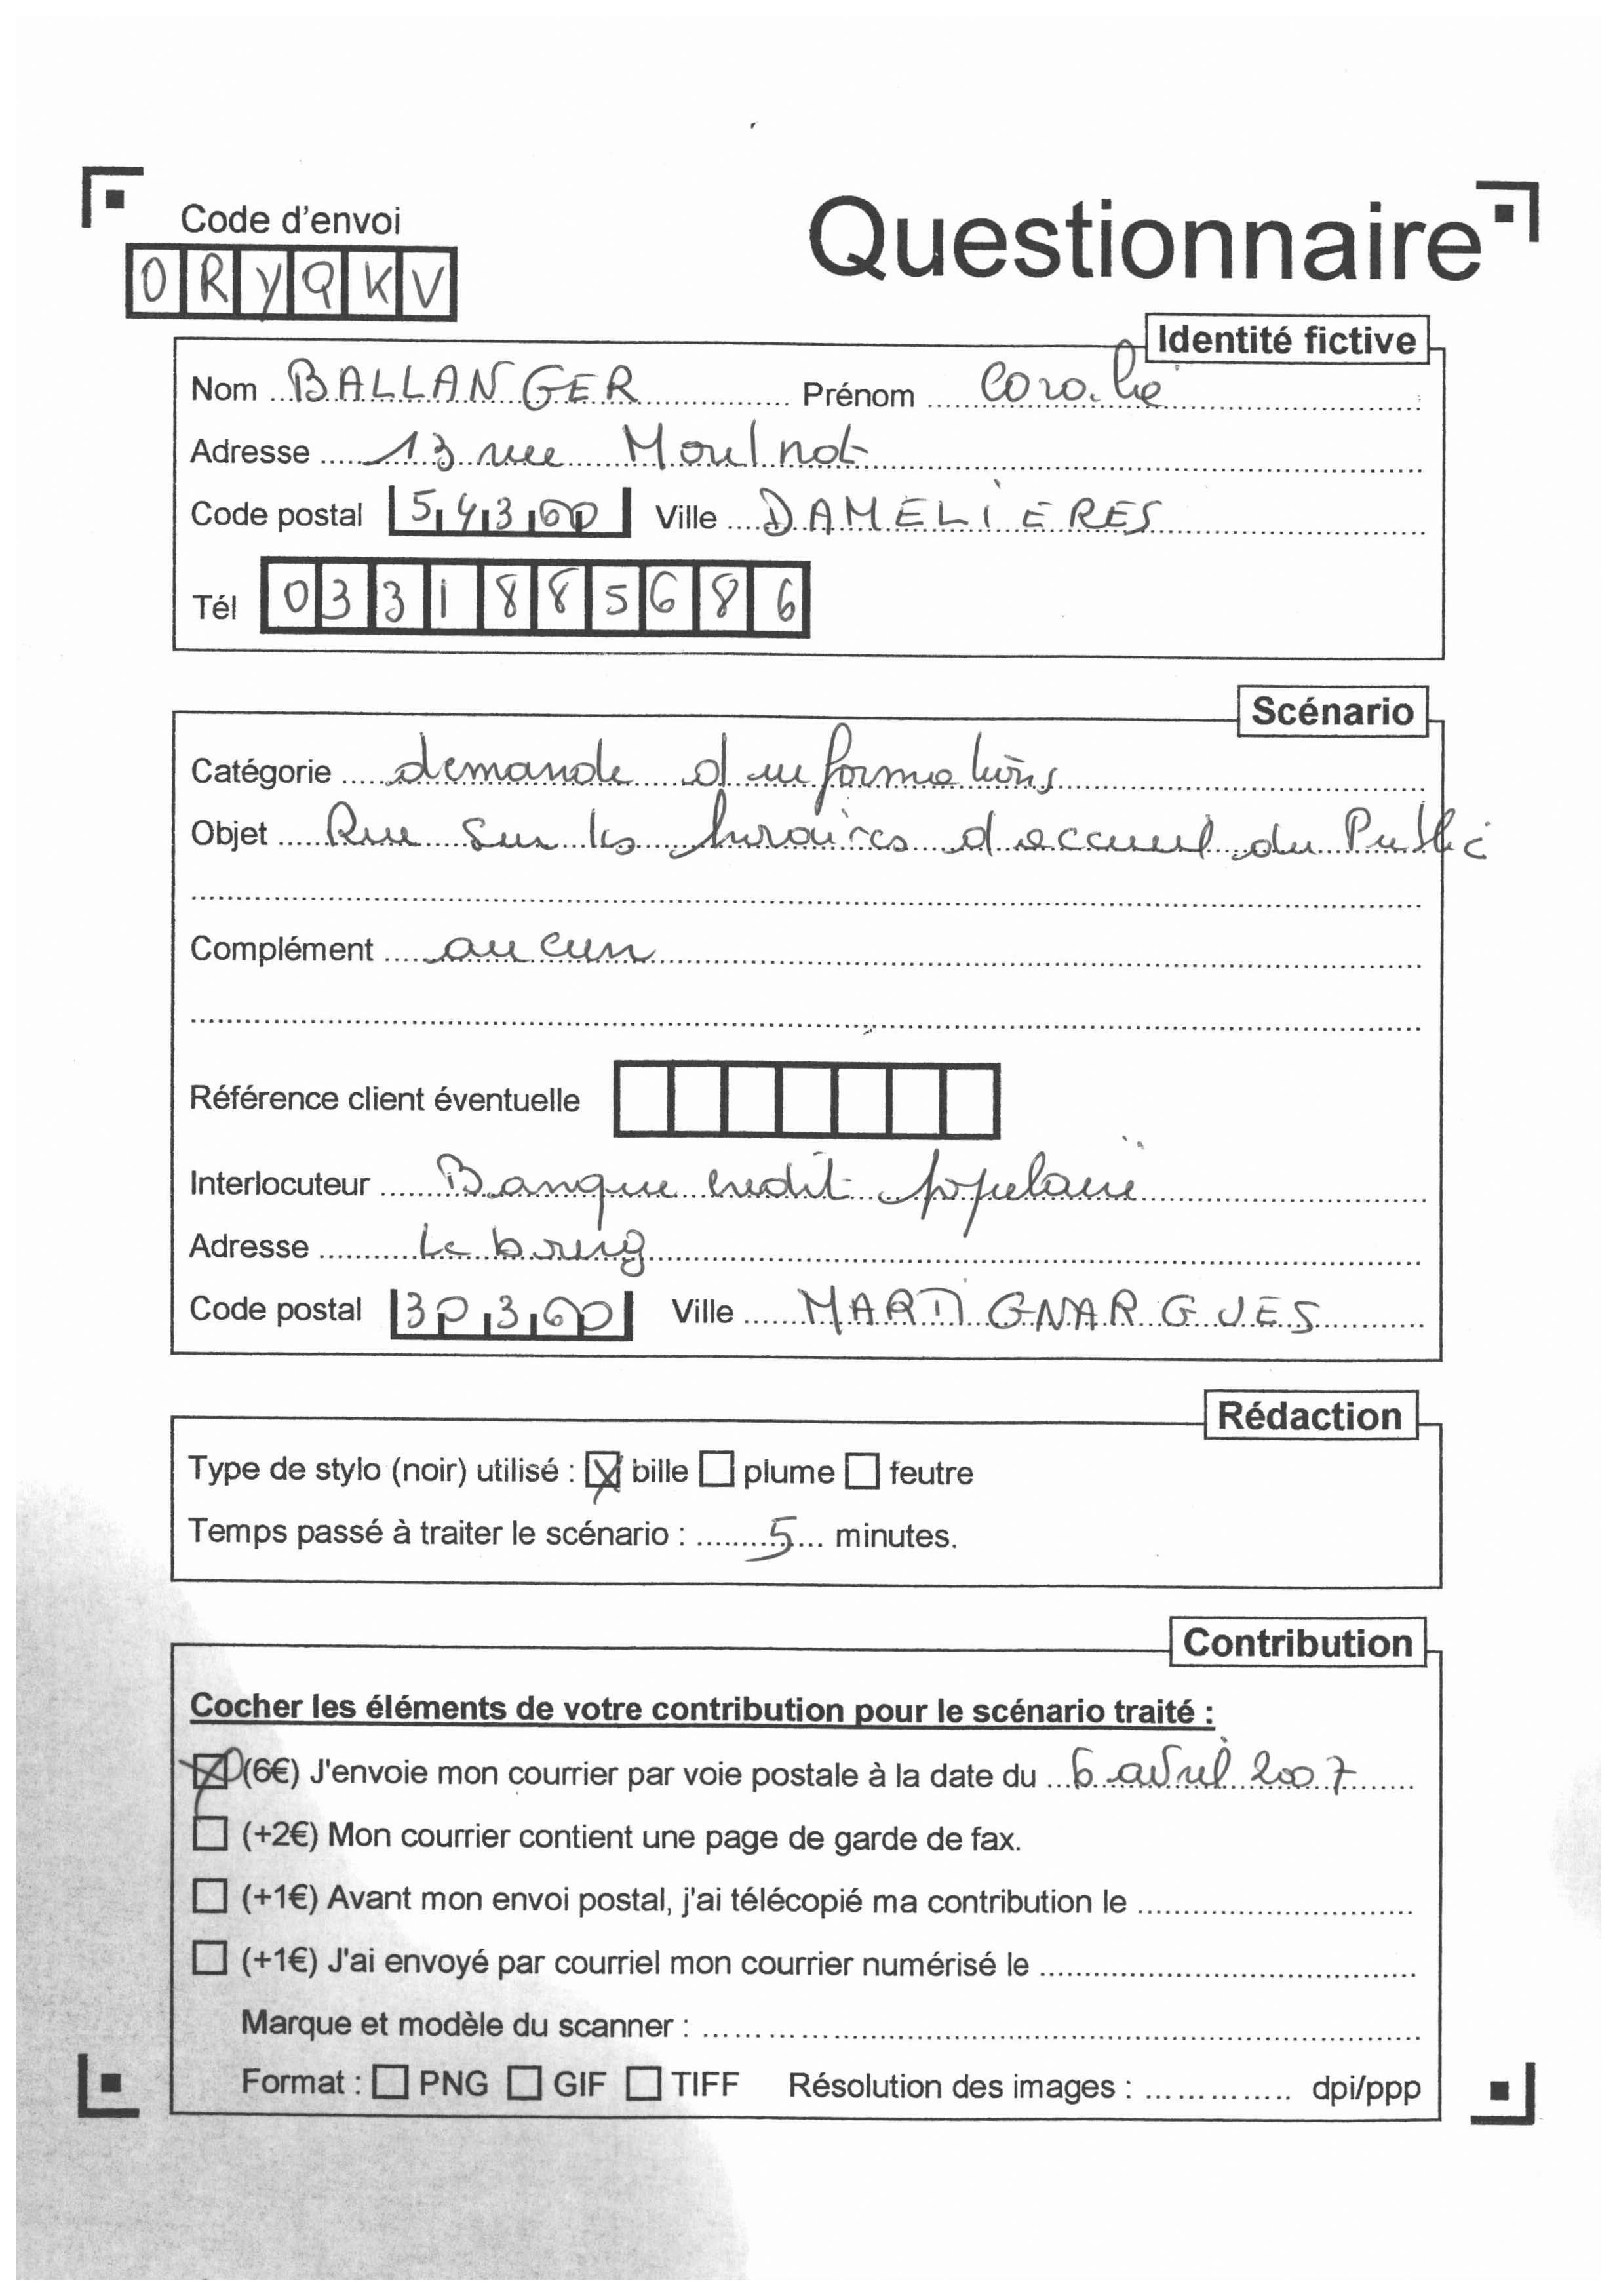 Code d'envoi
ORYQKV
Questionnaire
Identité fictive
Nom BALLANGER Prénom Coralie
Adresse 13 rue Moulnot
Code postal 54300 Ville DAMELIERES
Tél 0331885686
Scénario
Catégorie demande d'informations
Objet sur les horaires d'accueil du Public
Complément aucun
Référence client éventuelle
Interlocuteur Banque crédit populaire
Adresse Le bourg
Code postal 30300 Ville MARTIGNARGUES
Rédaction
Type de stylo (noir) utilisé : bille plume feutre
Temps passé à traiter le scénario : 5 minutes.
Contribution
Cocher les éléments de votre contribution pour le scénario traité :
(6€) J'envoie mon courrier par voie postale à la date du 6 avril 2007
(+2€) Mon courrier contient une page de garde de fax.
(+1€) Avant mon envoi postal, j'ai télécopié ma contribution le
(+1€) J'ai envoyé par courriel mon courrier numérisé le
Marque et modèle du scanner :
Format : PNG GIF TIFF Résolution des images : dpi/ppp